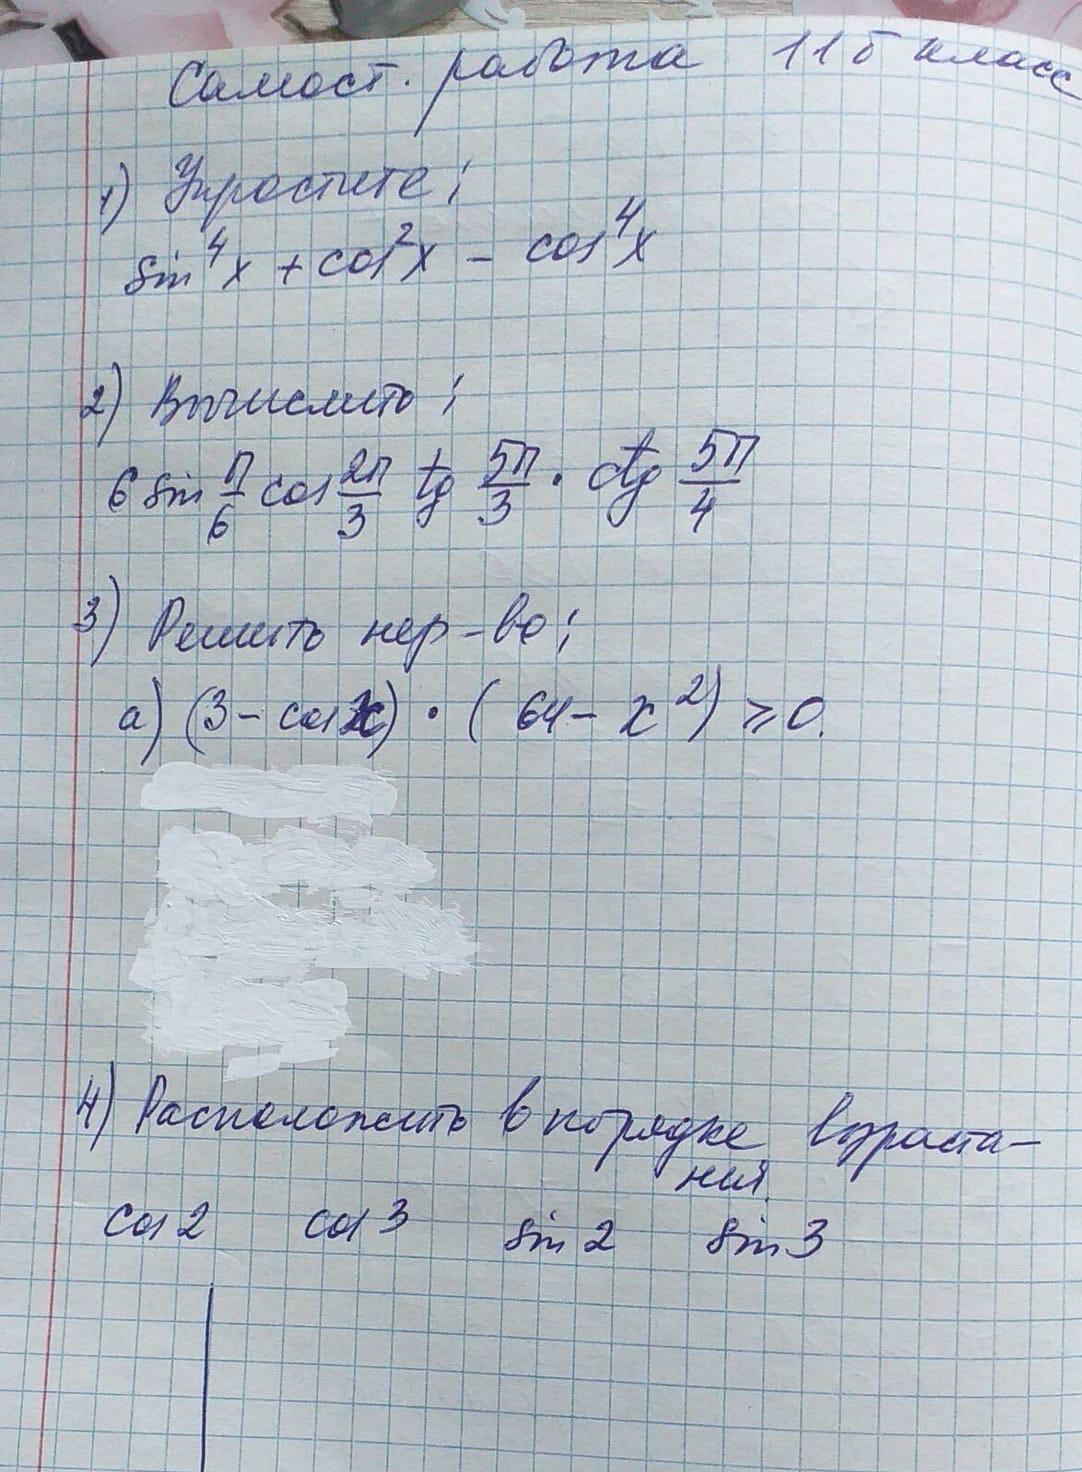 Самост. работа 11б класс
1) Упростите:
sin⁴x + cos²x - cos⁴x
2) Вычислить:
6 sin π/6 cos 2π/3 tg 5π/3 · ctg 5π/4
3) Решить нер-во:
а) (3 - cos x) · (64 - x²) ≥ 0.
4) Расположить в порядке возраста-
ния.
cos 2 cos 3 sin 2 sin 3